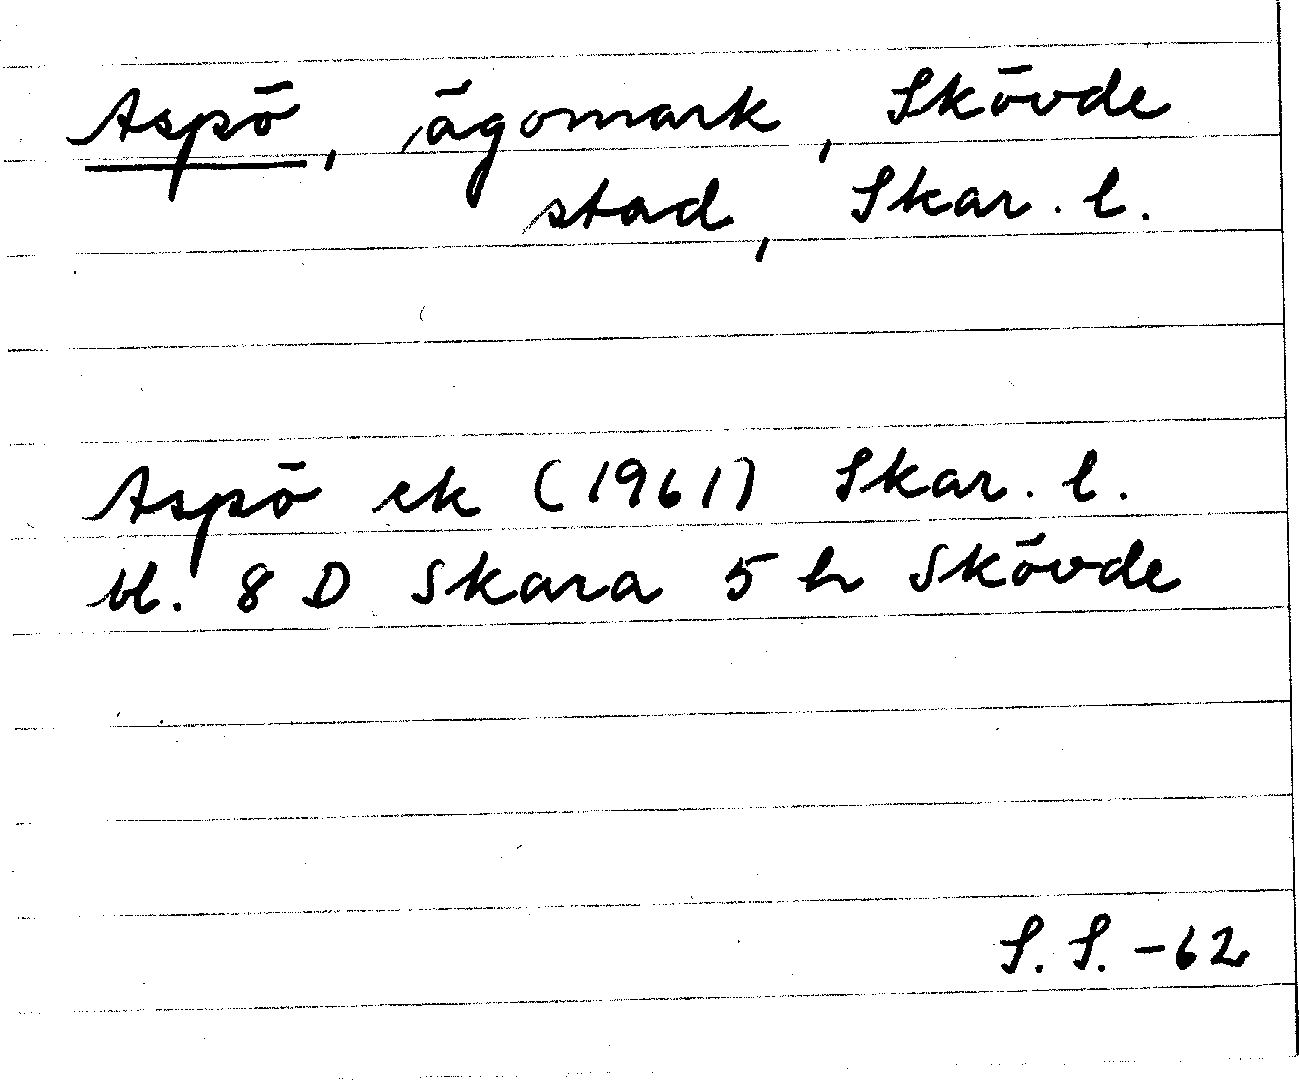 Aspö, ägomark, Skövde
stad, Skar. l.
Aspö ek (1961) Skar. l.
bl. 8 D Skara 5 h Skövde
S. S. -62